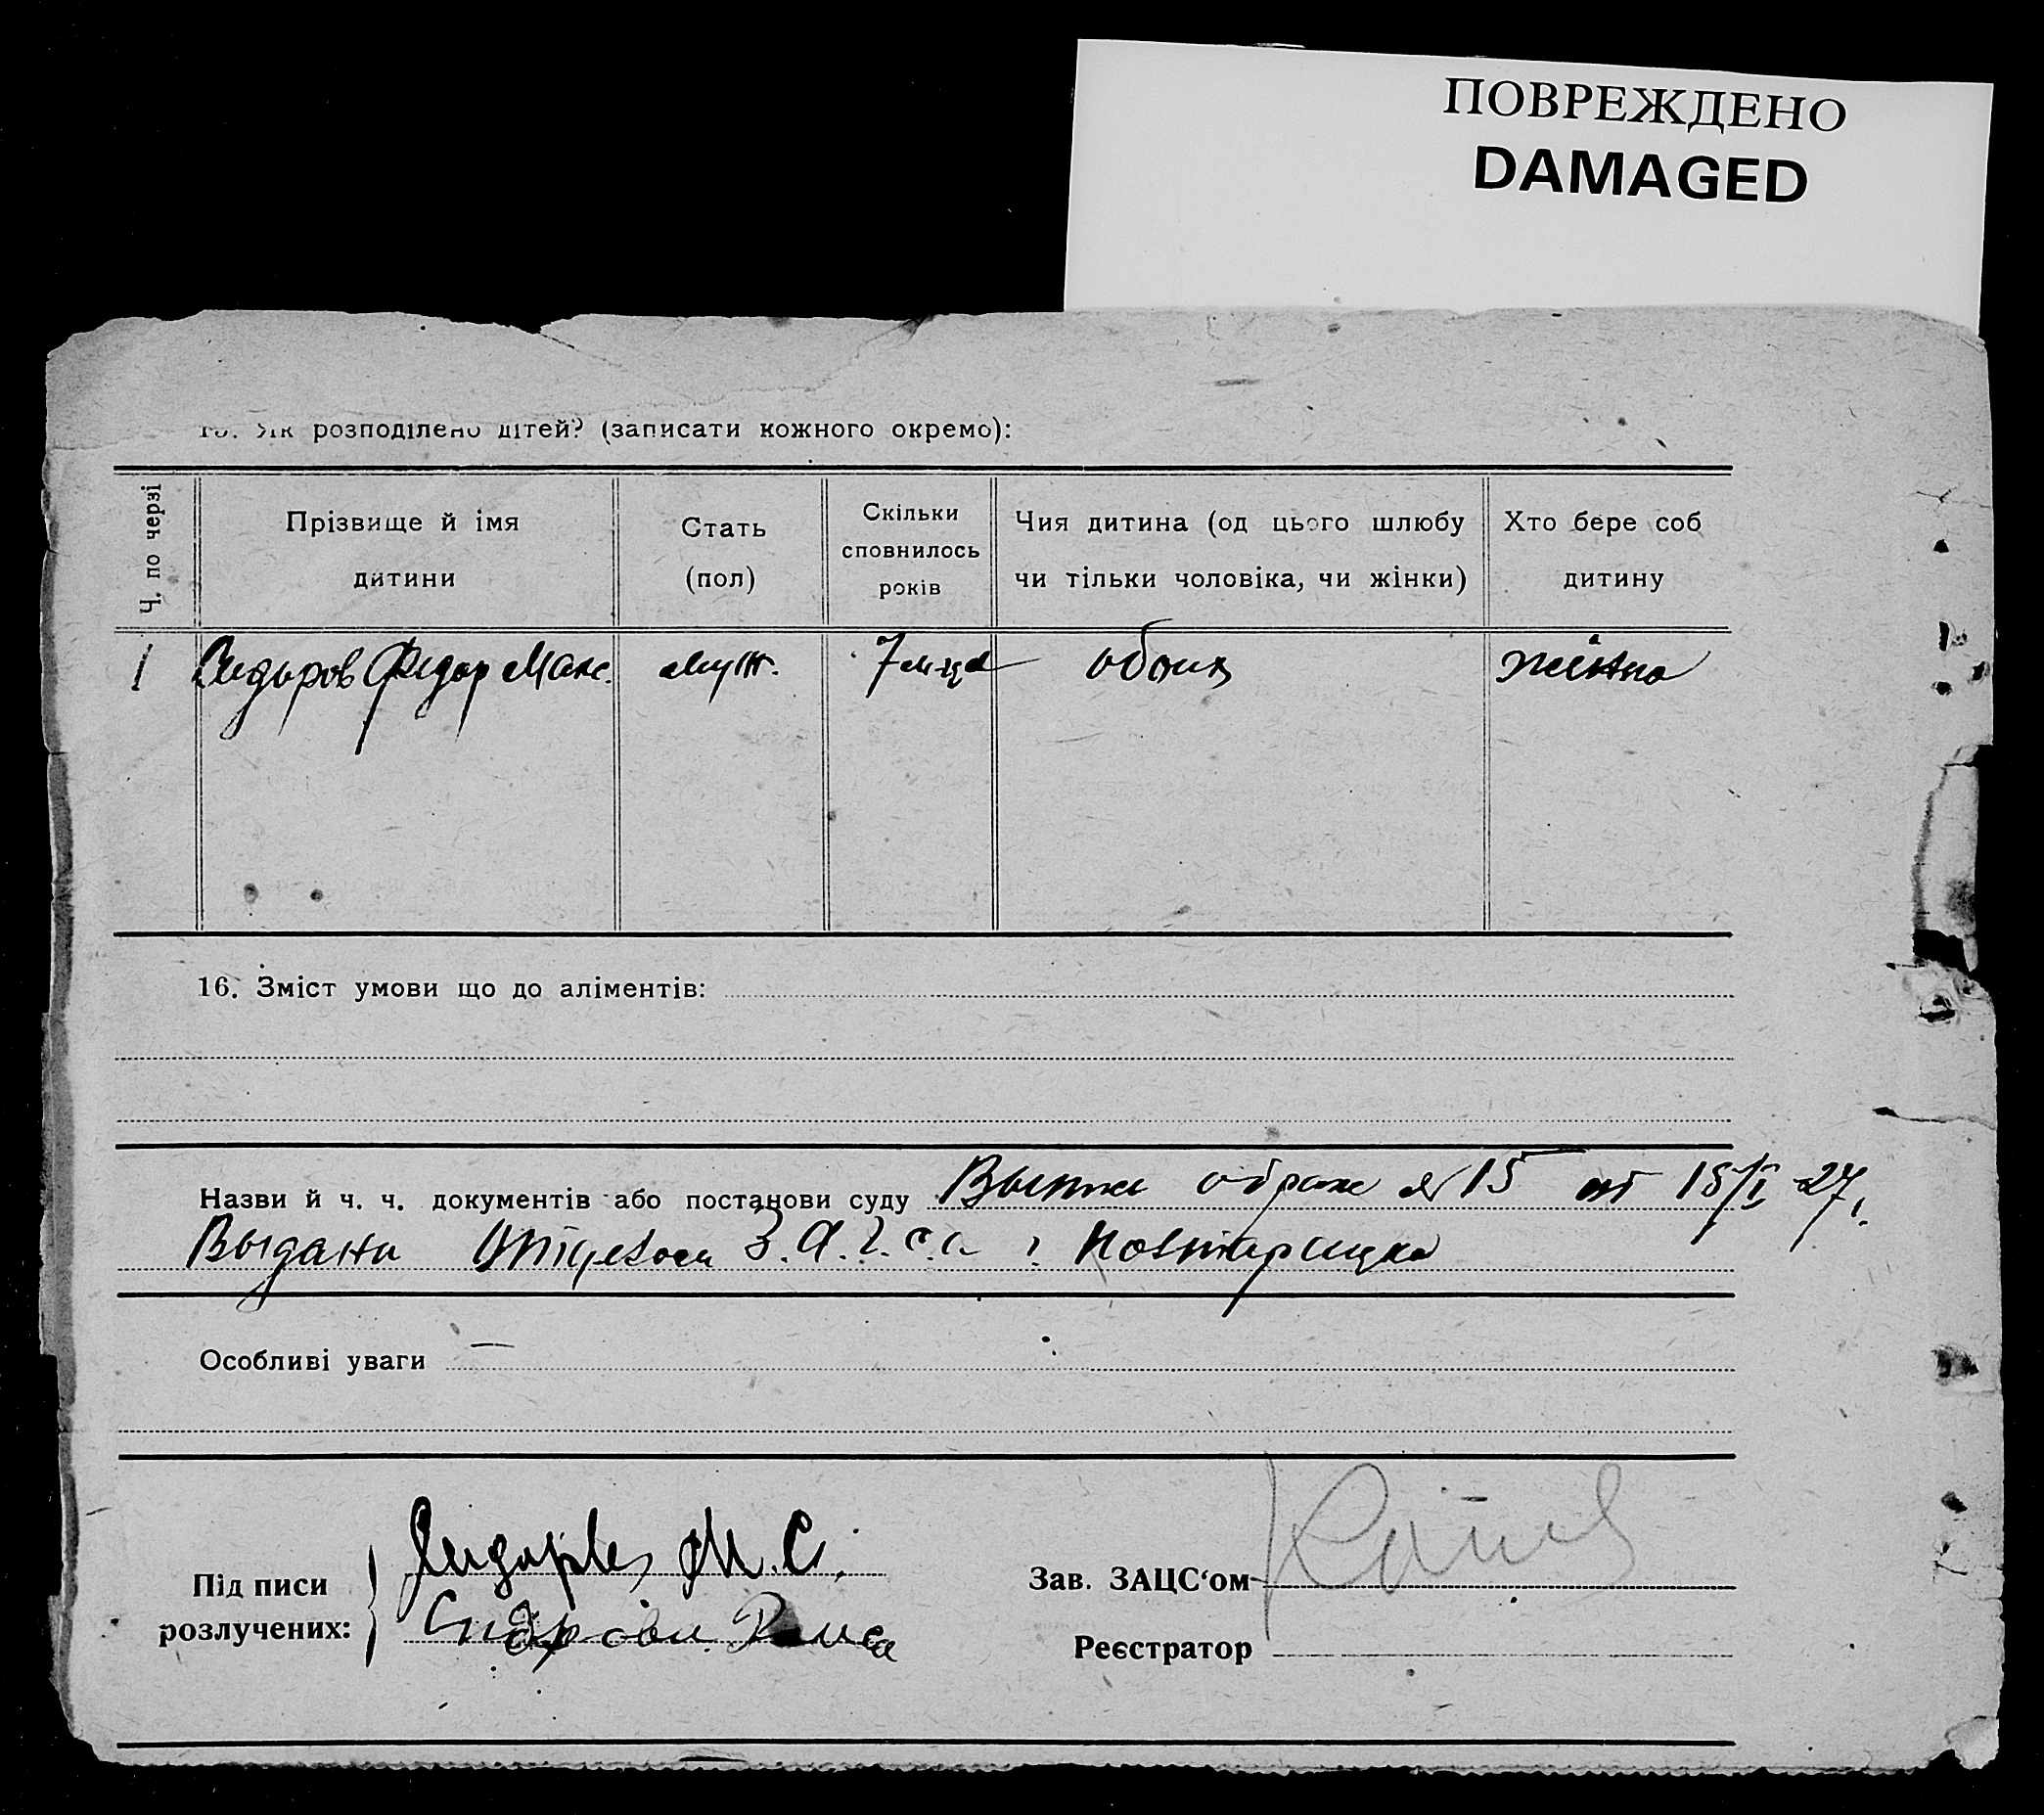 ПОВРЕЖДЕНО
DAMAGED
Як розподілено дітей? (записати кожного окремо):
Ч. по черзі
Прізвище й імя дитини
Стать (пол)
Скільки сповнилось років
Чия дитина (од цього шлюбу чи тільки чоловіка, чи жінки)
Хто бере соб дитину
1 Сидоров Федор Макс. муж. 7 обоих
16. Зміст умови що до аліментів:
Назви й ч. ч. документів або постанови суду № 15 от 15/I 27
Выдана З.А.Г.С.
Особливі уваги —
М. С.
Під писи
розлучених:
Зав. ЗАЦС‘ом
Реєстратор